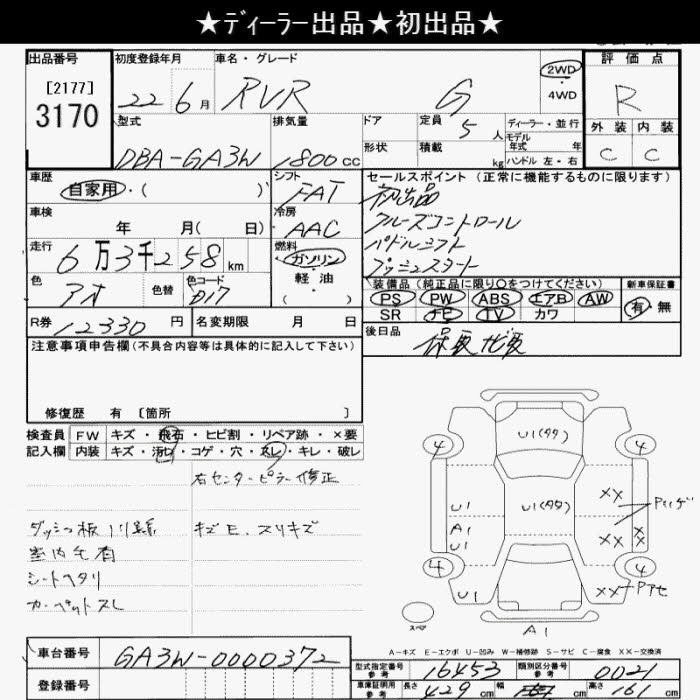 ★ディーラー出品★初出品★
出品番号 [2177] 3170
初度登録年月 22 6月
車名・グレード RVR G
2WD ・ 4WD
評価点 R
外装 内装
C C
型式 DBA-GA3W
排気量 1800cc
ドア
形状
定員 5人
積載 kg
ディーラー・並行
モデル年式 年
ハンドル 左・右
車歴 自家用・( )
シフト FAT
車検 年 月( 日)
冷房 AAC
走行 6万3千258km
燃料 ガソリン・軽油・( )
色 アオ
色替
色コード D17
R券 12330円
名変期限 月 日
セールスポイント (正常に機能するものに限ります)
初出品
クルーズコントロール
パドルシフト
プッシュスタート
装備品(純正品に限り○をつけてください)
PS PW ABS エアB AW
SR ナビ TV カワ
新車保証書
有・無
後日品 保取ナビ取
注意事項申告欄(不具合内容等は具体的に記入して下さい)
修復歴 有 〔箇所 〕
検査員記入欄
FW キズ・飛石・ヒビ割・リペア跡・×要
内装 キズ・汚レ・コゲ・穴・スレ・キレ・破レ
右センターピラー修正
キズE、スリキズ
室内毛有
シートヘタリ
カーペットスレ
4 4
U1(タタ)
U1(タタ)
U1
A1
U1
XX
XX
X
X
4 4
U1
XX
A1
スペア
A-キズ E-エクボ U-凹み W-補修跡 S-サビ C-腐食 XX-交換済
車台番号 GA3W-0000372
登録番号
型式指定番号 参考 16453
類別区分番号 参考 0021
車庫証明用 参考 長さ 429cm 幅 cm 高さ 161cm